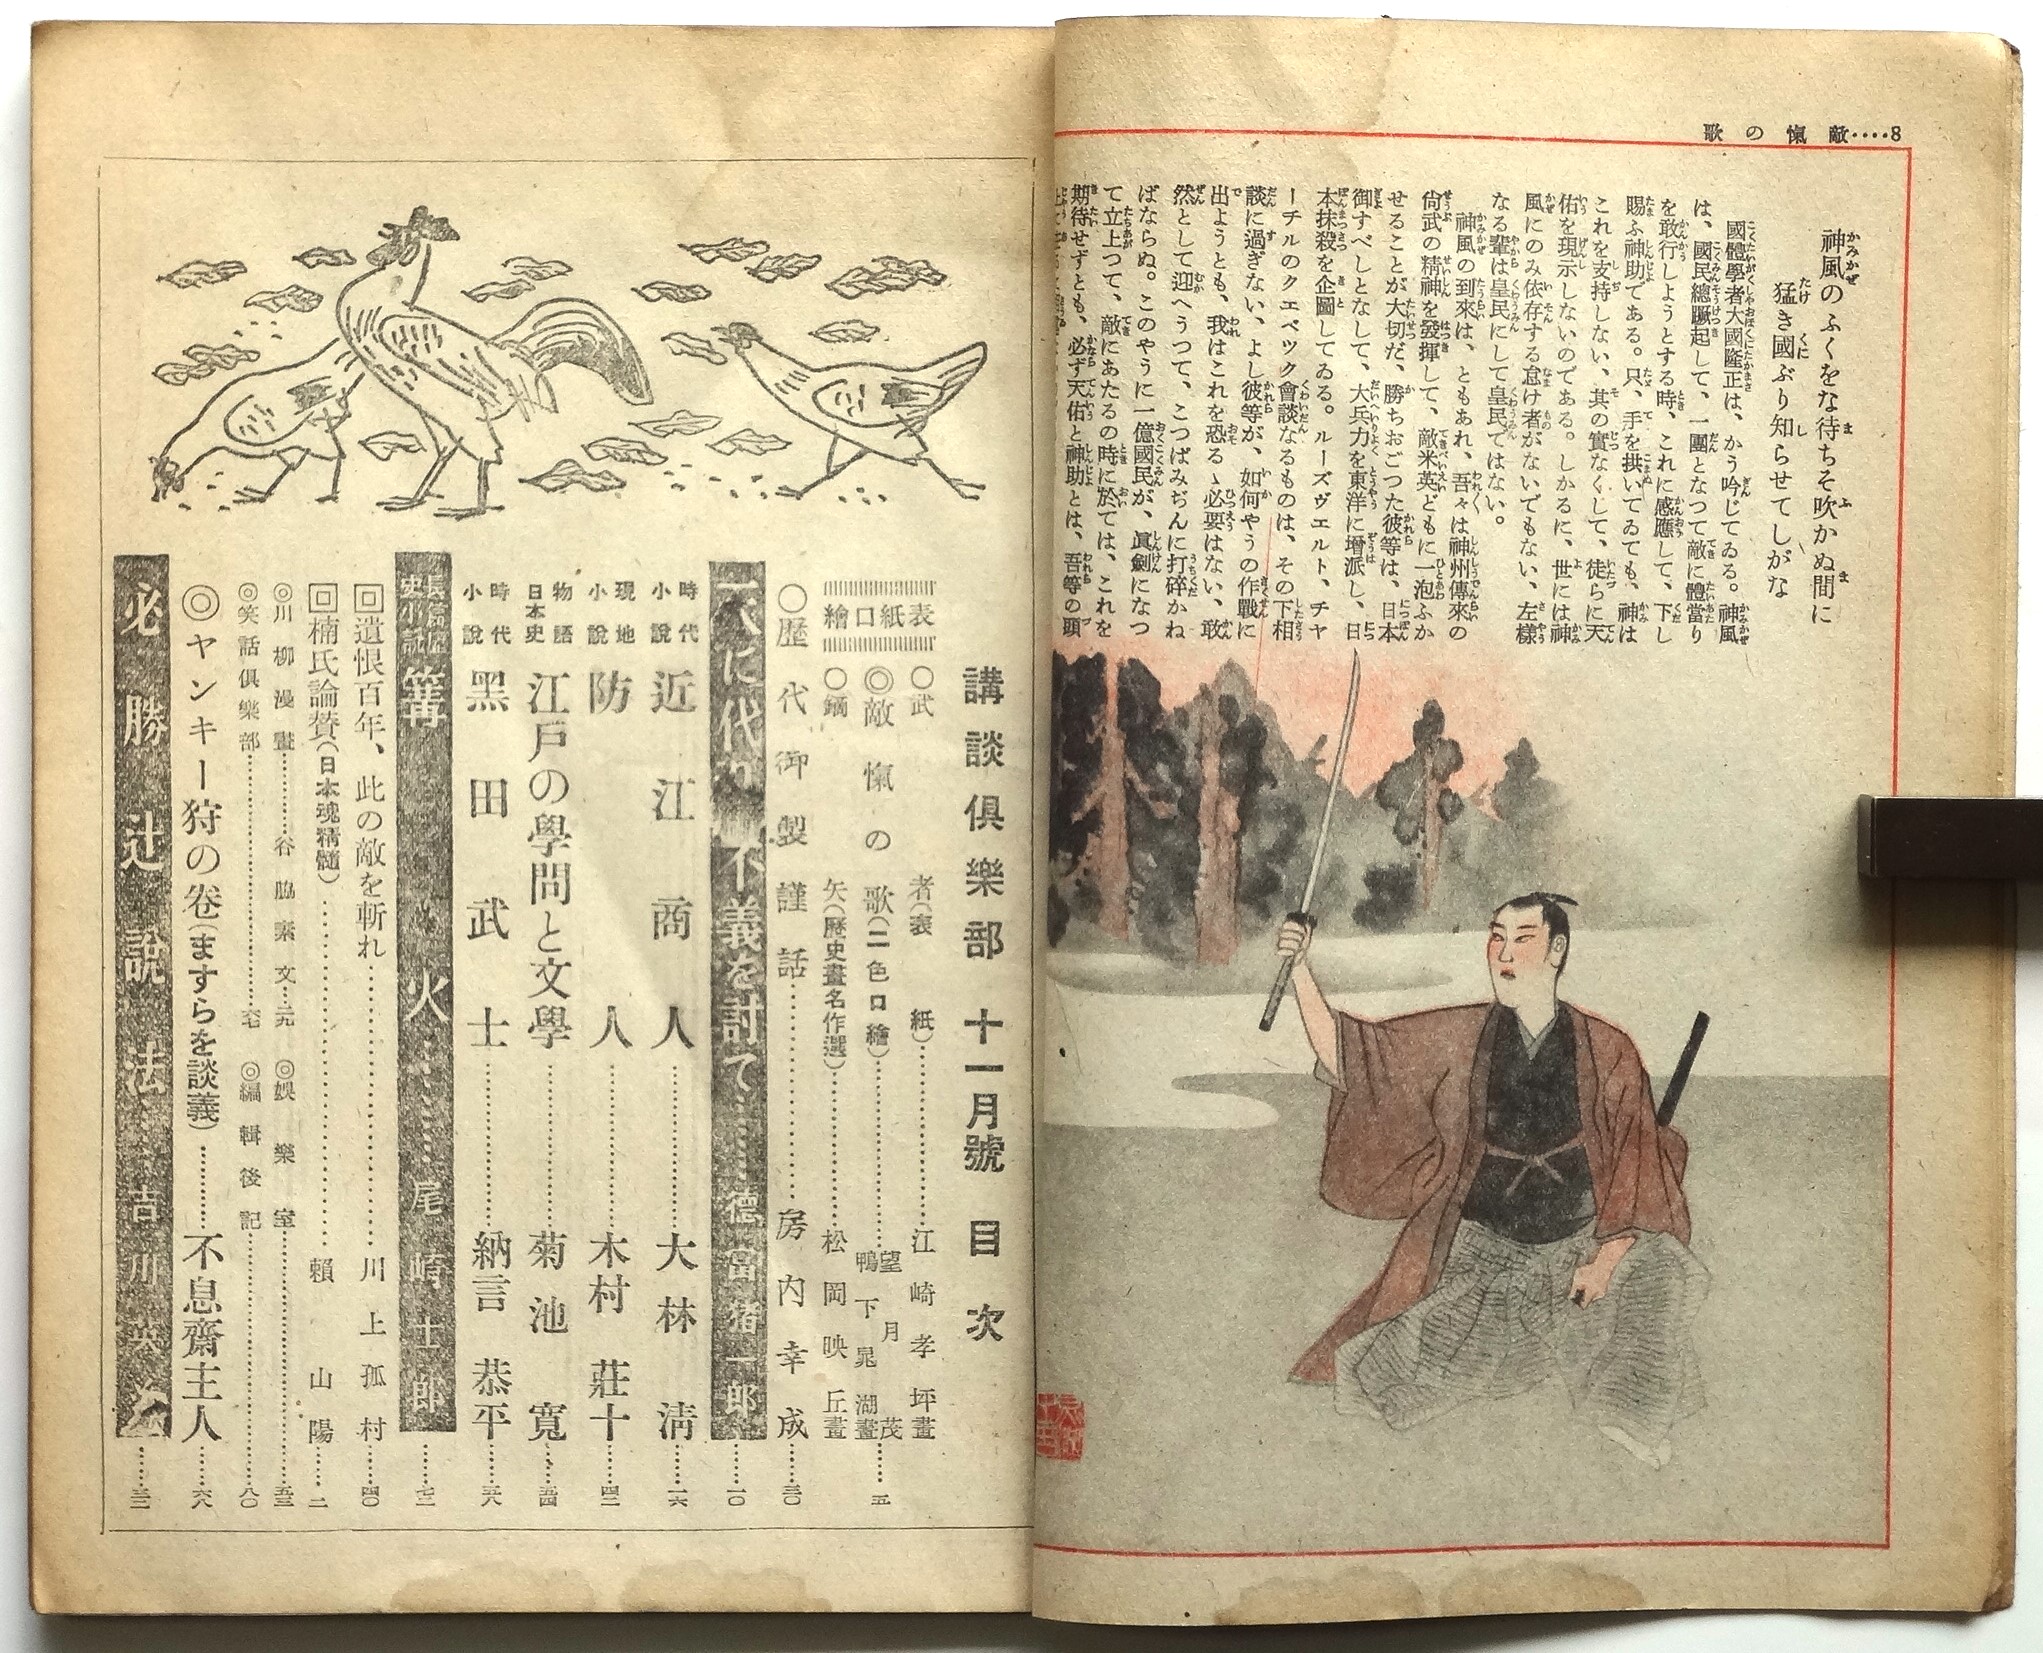 8‥‥敵愾の歌
神風のふくをな待ちそ吹かぬ間に
猛き國ぶり知らせてしがな
國體學者大國隆正は、かう吟じてゐる。神風
は、國民總蹶起して、一團となつて敵に體當り
を敢行しようとする時、これに感應して、下し
賜ふ神助である。只、手を拱いてゐても、神は
これを支持しない、其の實なくして、徒らに天
佑を現示しないのである。しかるに、世には神
風にのみ依存する怠け者がないでもない、左樣
なる輩は皇民にして皇民ではない。
神風の到來は、ともあれ、吾々は神州傳來の
尙武の精神を發揮して、敵米英どもに一泡ふか
せることが大切だ、勝ちおごつた彼等は、日本
御すべしとなして、大兵力を東洋に增派し、日
本抹殺を企圖してゐる。ルーズヴエルト、チヤ
ーチルのクエベツク會談なるものは、その下相
談に過ぎない、よし彼等が、如何やうの作戰に
出ようとも、我はこれを恐るゝ必要はない、敢
然として迎へうつて、こつぱみぢんに打碎かね
ばならぬ。このやうに一億國民が、眞劍になつ
て立上つて、敵にあたるの時に於ては、これを
期待せずとも、必ず天佑と神助とは、吾等の頭
講談俱樂部 十一月號 目次
表紙口繪
○武者(表紙)‥‥江崎孝坪畫
◎敵愾の歌(二色口繪)‥‥望月茂 鴨下晁湖畫‥‥五
○鏑矢(歷史畫名作選)‥‥松岡映丘畫
○歷代御製謹話‥‥房内幸成‥‥三〇
天に代り不義を討て‥‥德富猪一郎‥‥一〇
時代小說 近江商人‥‥大林淸‥‥一六
現地小說 防人‥‥木村莊十‥‥四二
物語日本史 江戶の學問と文學‥‥菊池寬‥‥五四
時代小說 黑田武士‥‥納言恭平‥‥五八
長篇歷史小說 篝火‥‥尾崎士郎‥‥七二
回遺恨百年、此の敵を斬れ‥‥川上孤村‥‥四〇
回楠氏論贊(日本魂精髓)‥‥賴山陽‥‥二
◎川柳漫畫‥‥谷脇素文‥‥ ◎娛樂室‥‥五三
◎笑話俱樂部‥‥ ◎編輯後記‥‥八〇
◎ヤンキー狩の卷(ますらを談義)‥‥不息齋主人‥‥六八
必勝辻說法‥‥吉川英治‥‥三二